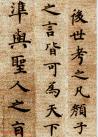 後世考之凡顏子
之言皆可為天下
準與聖人之言